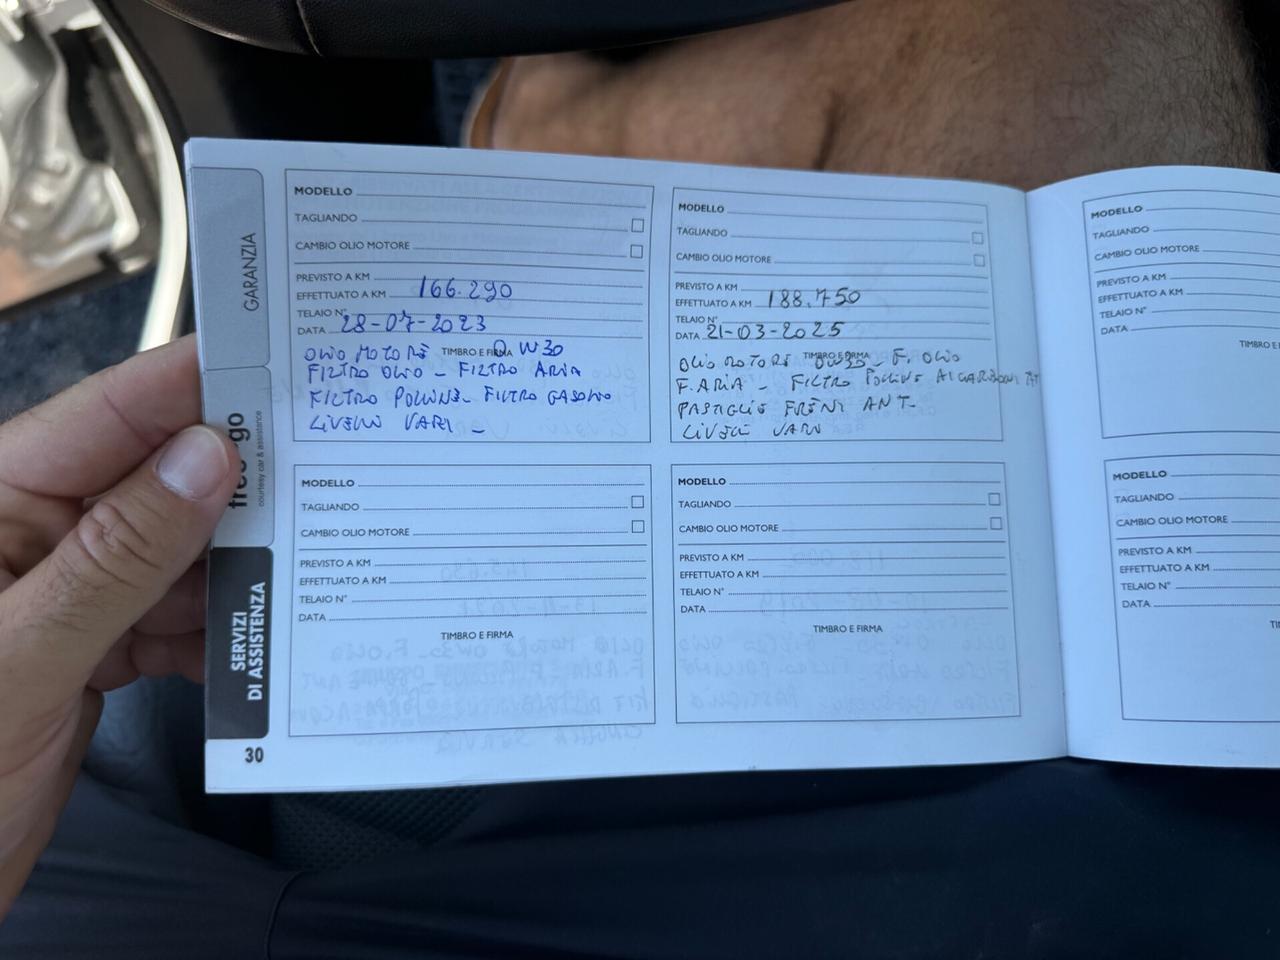 GARANZIA
go
courtesy car & assistance
SERVIZI
DI ASSISTENZA
30
MODELLO
TAGLIANDO
CAMBIO OLIO MOTORE
PREVISTO A KM
EFFETTUATO A KM 166.290
TELAIO N°
DATA 28-07-2023
TIMBRO E FIRMA
OLIO MOTORE 0W30
FILTRO OLIO - FILTRO ARIA
FILTRO POLLINE - FILTRO GASOLIO
LIVELLI VARI -
MODELLO
TAGLIANDO
CAMBIO OLIO MOTORE
PREVISTO A KM
EFFETTUATO A KM 188.750
TELAIO N°
DATA 21-03-2025
TIMBRO E FIRMA
OLIO MOTORE 0W30 - F. OLIO
F. ARIA - FILTRO POLLINE AI CARBONI
PASTIGLIE FRENI ANT-
LIVELLI VARI
MODELLO
TAGLIANDO
CAMBIO OLIO MOTORE
PREVISTO A KM
EFFETTUATO A KM
TELAIO N°
DATA
TIMBRO E FIRMA
MODELLO
TAGLIANDO
CAMBIO OLIO MOTORE
PREVISTO A KM
EFFETTUATO A KM
TELAIO N°
DATA
TIMBRO E FIRMA
MODELLO
TAGLIANDO
CAMBIO OLIO MOTORE
PREVISTO A KM
EFFETTUATO A KM
TELAIO N°
DATA
TIMBRO E
MODELLO
TAGLIANDO
CAMBIO OLIO MOTORE
PREVISTO A KM
EFFETTUATO A KM
TELAIO N°
DATA